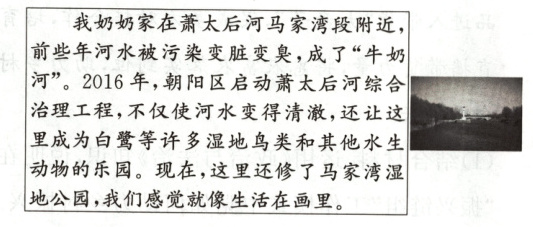 我奶奶家在萧太后河马家湾段附近，
前些年河水被污染变脏变臭，成了“牛奶
河”。2016年，朝阳区启动萧太后河综合
治理工程，不仅使河水变得清澈，还让这
里成为白鹭等许多湿地鸟类和其他水生
动物的乐园。现在，这里还修了马家湾湿
地公园，我们感觉就像生活在画里。